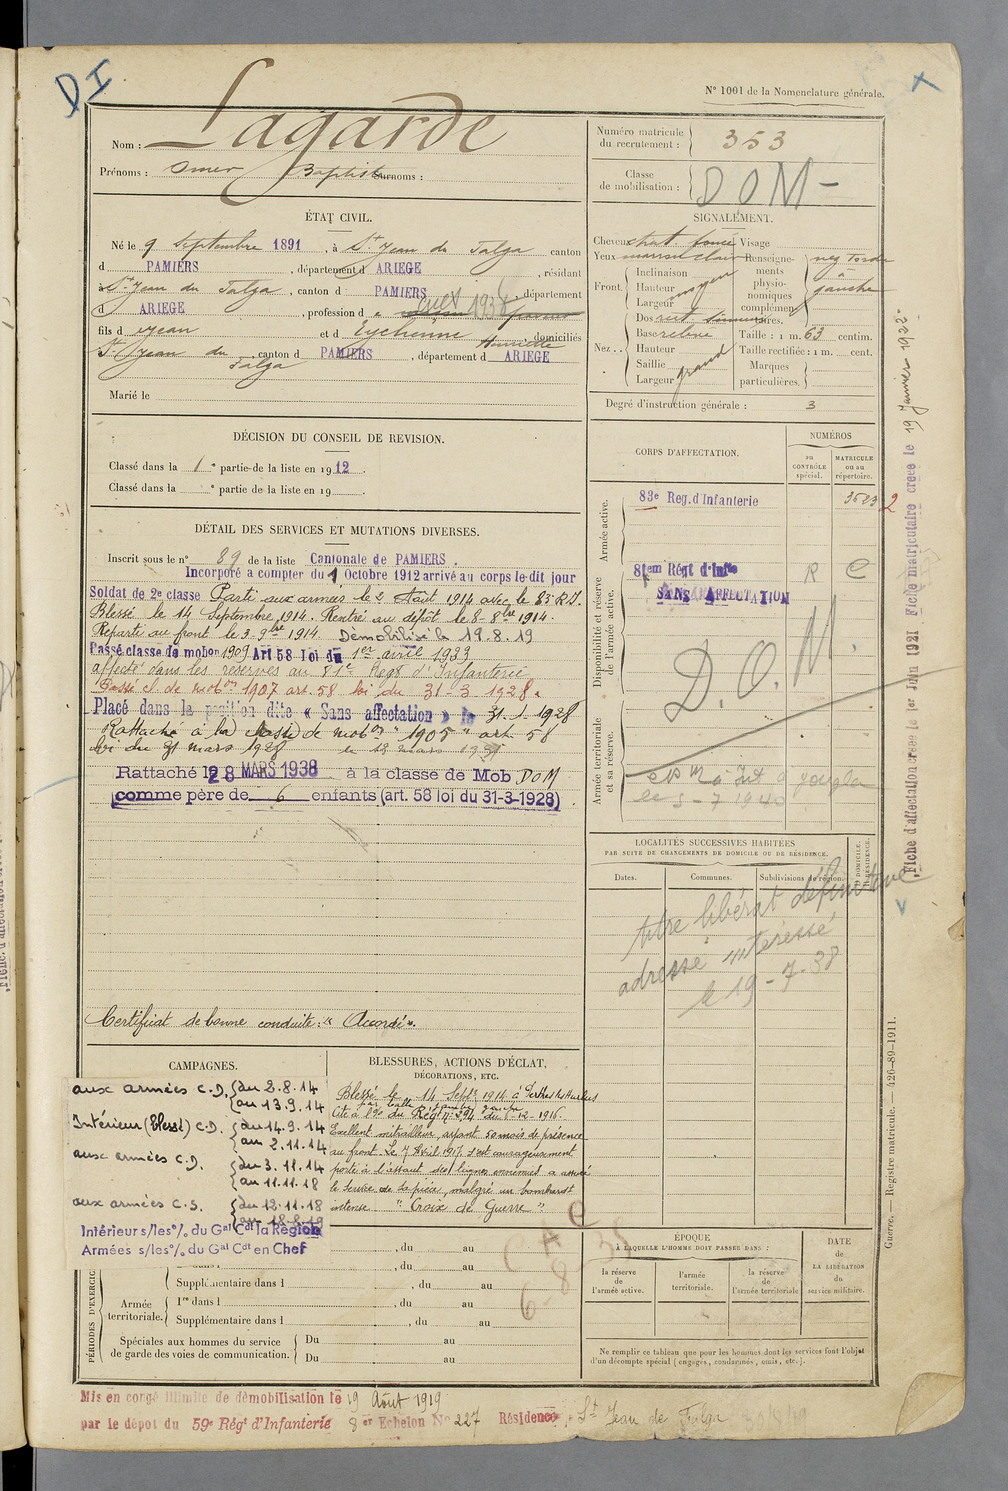 D I
N° 1001 de la Nomenclature générale.
Nom : Lagarde
Prénoms : Omer Baptiste Surnoms :
Numéro matricule du recrutement : 353
Classe de mobilisation : D O M -
ÉTAT CIVIL.
Né le 9 Septembre 1891, à St Jean du Falga canton
d PAMIERS, département d ARIEGE, résidant
à St Jean du Falga, canton d PAMIERS, département
d ARIEGE, profession d cult 1938
fils d Jean et d Eychenne Henriette domiciliés
St Jean du Falga, canton d PAMIERS, département d ARIEGE
Marié le
SIGNALEMENT.
Cheveux chat. foncé Visage
Yeux marron clair Renseignements physionomiques complémentaires. nez tordu à gauche
Front. Inclinaison
Hauteur moyen
Largeur
Nez.. Dos rect. sinueux
Base relevé Taille : 1 m. 63 centim.
Hauteur grand Taille rectifiée : 1 m. cent.
Saillie Marques
Largeur particulières.
Degré d'instruction générale : 3
DÉCISION DU CONSEIL DE REVISION.
Classé dans la 1e partie de la liste en 1912.
Classé dans la e partie de la liste en 19
DÉTAIL DES SERVICES ET MUTATIONS DIVERSES.
Inscrit sous le n° 89 de la liste Cantonale de PAMIERS.
Incorporé a compter du 1 Octobre 1912 arrivé au corps le dit jour
Soldat de 2e classe Parti aux armées le 2 Août 1914 avec le 83e R.I.
Blessé le 14 Septembre 1914. Rentré au dépôt le 8-8bre 1914.
Reparti au front le 3.9bre 1914. Démobilisé le 19.8.19
Passé classe de mobon 1909 Art 58 loi du 1er avril 1933
affecté dans les réserves au 81e Regt d'Infanterie
Passé cl de mobon 1907 art. 58 loi du 31-3-1928.
Placé dans la position dite « Sans affectation » le 31.1.1928
Rattaché à la classe de mobon "1905" art. 58
loi du 31 mars 1928 le 12 mars 1931
Rattaché le 28 MARS 1938 à la classe de Mob. DOM
comme père de 6 enfants (art. 58 loi du 31-3-1928)
Certificat de bonne conduite : "Accordé".
CORPS D'AFFECTATION.
NUMÉROS
au CONTRÔLE spécial.
MATRICULE ou au répertoire.
Armée active.
83e Reg. d'Infanterie 3623 2
Disponibilité et réserve de l'armée active.
81em Régt d'Infie R C
SANS AFFECTATION
D. O. M.
Armée territoriale et sa réserve.
le 5-7 1940
LOCALITÉS SUCCESSIVES HABITÉES
PAR SUITE DE CHANGEMENTS DE DOMICILE OU DE RÉSIDENCE.
Dates. Communes. Subdivisions de région. D. DOMICILE. R. RÉSIDENCE.
titre libérat définitive
adressé intéressé
le 19-7-38
CAMPAGNES.
aux armées C.D. du 2.8.14
au 13.9.14
Intérieur (blessé) C.D. du 14.9.14
au 2.11.14
aux armées C.D. du 3.11.14
au 11.11.18
aux armées C.S. du 12.11.18
au 18.8.19
Intérieur s/les°/o du Gal Cdt la Région
Armées s/les°/o du Gal Cdt en Chef
BLESSURES, ACTIONS D'ÉCLAT,
DÉCORATIONS, ETC.
Blessé le 14 Septe 1914 à Perthes les Hurlus
par balle jambe gauche
Cité à l'o. du Régt n° 394 du 6-12-1916.
Excellent mitrailleur, ayant 50 mois de présence
au front. Le 7 Avril 1917, s'est courageusement
porté à l'assaut des lignes ennemies a assuré
le service de sa pièce, malgré un bombardt
intense "Croix de Guerre"
PÉRIODES D'EXERCICES
, du au
dans 1 , du au
Supplémentaire dans 1 , du au
Armée territoriale. 1re dans 1 , du au
Supplémentaire dans 1 , du au
Spéciales aux hommes du service de garde des voies de communication. Du au
Du au
ÉPOQUE
À LAQUELLE L'HOMME DOIT PASSER DANS :
la réserve de l'armée active.
l'armée territoriale.
la réserve de l'armée territoriale
DATE de LA LIBÉRATION du service militaire.
Ne remplir ce tableau que pour les hommes dont les services font l'objet
d'un décompte spécial (engagés, condamnés, omis, etc.).
Mis en congé illimité de démobilisation le 19 Août 1919
par le dépot du 59e Régt d'Infanterie 8er Echelon N° 227 Résidence St Jean de Falga
Fiche d'affectation créée le 1er Juin 1921 Fiche matriculaire créée le 19 Janvier 1922
Guerre. — Registre matricule. — 426-89-1911.